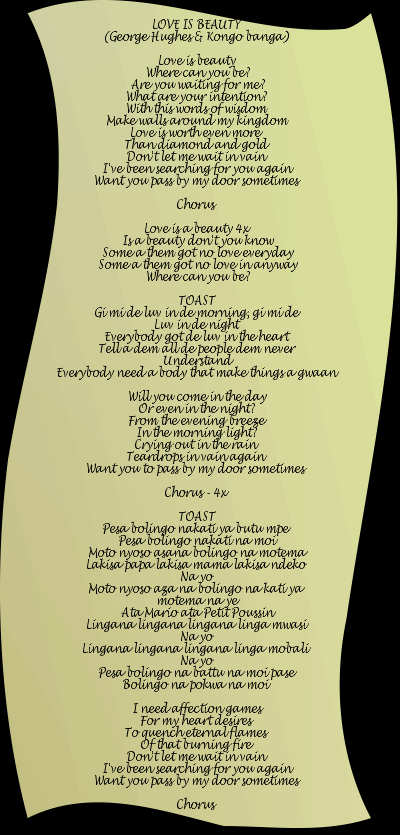 LOVE IS BEAUTY
(George Hughes & Kongo banga)
Love is beauty
Where can you be?
Are you waiting for me?
What are your intention?
With this words of wisdom
Make walls around my kingdom
Love is worth even more
Than diamond and gold
Don't let me wait in vain
I've been searching for you again
Want you pass by my door sometimes
Chorus
Love is a beauty 4x
Is a beauty don't you know
Some a them got no love everyday
Some a them got no love in anyway
Where can you be?
TOAST
Gi mi de luv in de morning, gi mi de
Luv in de night
Everybody got de luv in the heart
Tell a dem all de people dem never
Understand
Everybody need a body that make things a gwaan
Will you come in the day
Or even in the night?
From the evening breeze
In the morning light?
Crying out in the rain
Teardrops in vain again
Want you to pass by my door sometimes
Chorus - 4x
TOAST
Pesa bolingo nakati ya butu mpe
Pesa bolingo nakati na moi
Moto nyoso asana bolingo na motema
Lakisa papa lakisa mama lakisa ndeko
Na yo
Moto nyoso aza na bolingo na kati ya
motema na ye
Ata Mario ata Petit Poussin
Lingana lingana lingana linga mwasi
Na yo
Lingana lingana lingana linga mobali
Na yo
Pesa bolingo na battu na moi pase
Bolingo na pokwa na moi
I need affection games
For my heart desires
To quench eternal flames
Of that burning fire
Don't let me wait in vain
I've been searching for you again
Want you pass by my door sometimes
Chorus